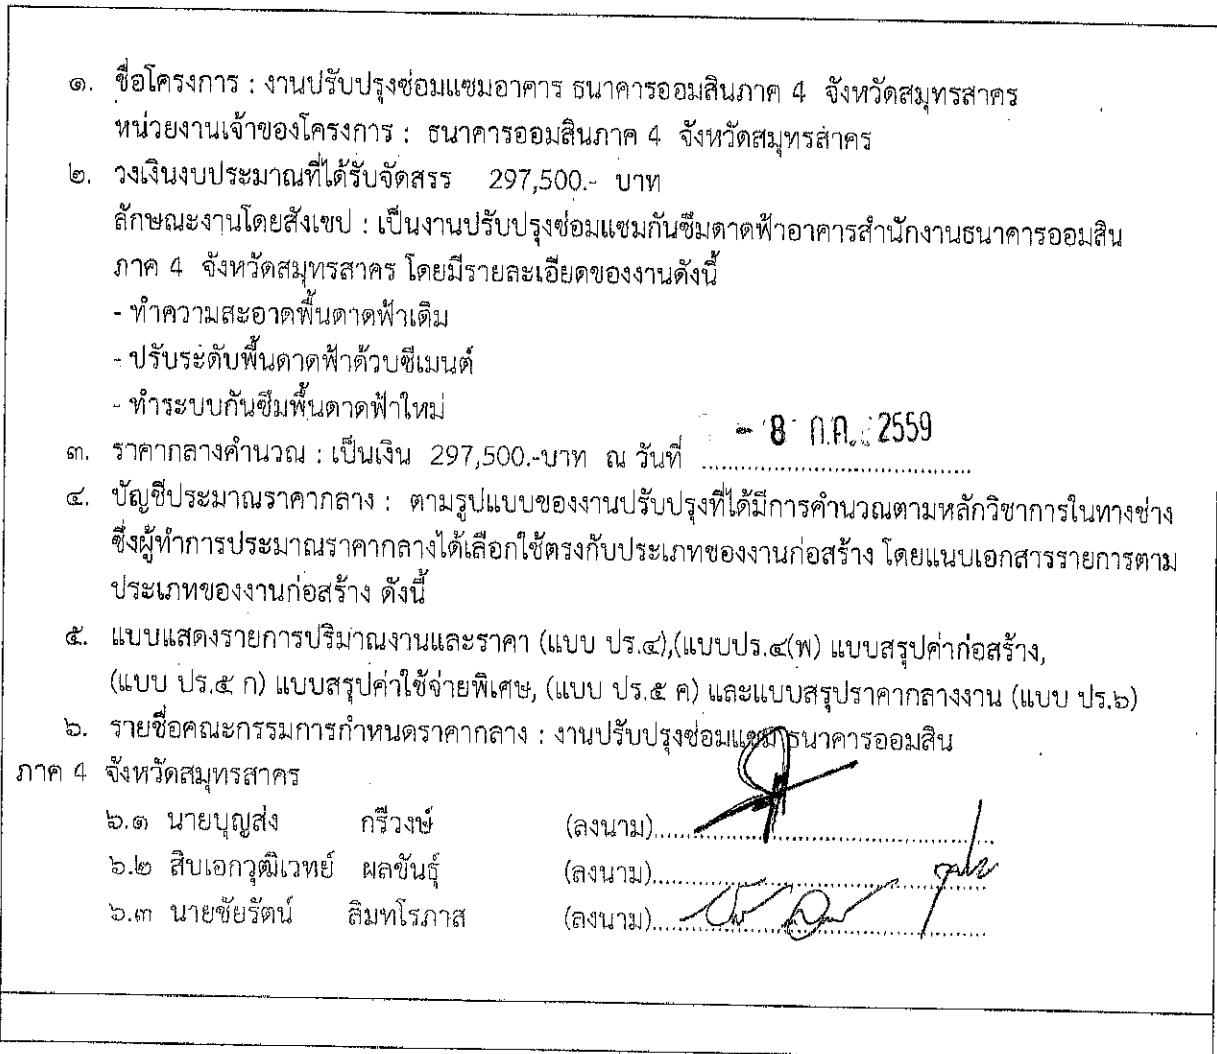 ๑. ชื่อโครงการ : งานปรับปรุงซ่อมแซมอาคาร ธนาคารออมสินภาค 4 จังหวัดสมุทรสาคร
หน่วยงานเจ้าของโครงการ : ธนาคารออมสินภาค 4 จังหวัดสมุทรสาคร
๒. วงเงินงบประมาณที่ได้รับจัดสรร 297,500.- บาท
ลักษณะงานโดยสังเขป : เป็นงานปรับปรุงซ่อมแซมกันซึมดาดฟ้าอาคารสำนักงานธนาคารออมสิน
ภาค 4 จังหวัดสมุทรสาคร โดยมีรายละเอียดของงานดังนี้
- ทำความสะอาดพื้นดาดฟ้าเดิม
- ปรับระดับพื้นดาดฟ้าด้วบซีเมนต์
- ทำระบบกันซึมพื้นดาดฟ้าใหม่
๓. ราคากลางคำนวณ : เป็นเงิน 297,500.-บาท ณ วันที่ - 8 ก.ค. 2559
๔. บัญชีประมาณราคากลาง : ตามรูปแบบของงานปรับปรุงที่ได้มีการคำนวณตามหลักวิชาการในทางช่าง
ซึ่งผู้ทำการประมาณราคากลางได้เลือกใช้ตรงกับประเภทของงานก่อสร้าง โดยแนบเอกสารรายการตาม
ประเภทของงานก่อสร้าง ดังนี้
๕. แบบแสดงรายการปริมาณงานและราคา (แบบ ปร.๔),(แบบปร.๔(พ) แบบสรุปค่าก่อสร้าง,
(แบบ ปร.๕ ก) แบบสรุปค่าใช้จ่ายพิเศษ, (แบบ ปร.๕ ค) และแบบสรุปราคากลางงาน (แบบ ปร.๖)
๖. รายชื่อคณะกรรมการกำหนดราคากลาง : งานปรับปรุงซ่อมแซม ธนาคารออมสิน
ภาค 4 จังหวัดสมุทรสาคร
๖.๑ นายบุญส่ง กรีวงษ์ (ลงนาม)
๖.๒ สิบเอกวุฒิเวทย์ ผลขันธุ์ (ลงนาม)
๖.๓ นายชัยรัตน์ ลิมทโรภาส (ลงนาม)